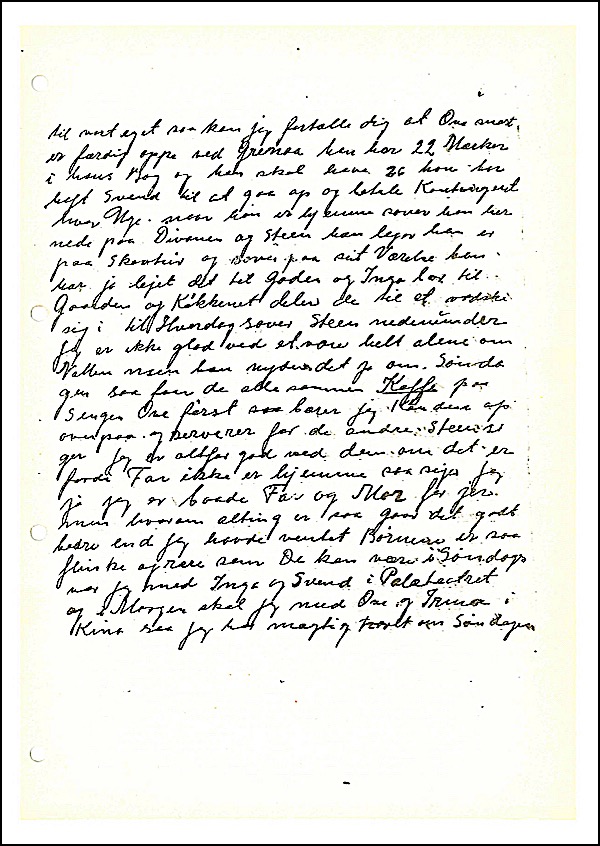 til vort eget saa kan jeg fortælle dig at Ove snart
er færdig oppe ved Grenaa han har 22 Mærker
i hans Bog og han skal have 26 han har
Svend til at gaa op og betale Kontingent
hver Uge. naar han er hjemme sover han her
nede paa Divanen og Steen han er
paa og sover paa sit Værelse han
har jo lejet det til Gaden og Inga til
Gaarden og Køkkenet deler de til et
sig i til Hverdag sover Steen nedenunder
Jeg er ikke glad ved at være helt alene om
Natten men han nyder det jo om Sønda
gen saa faar de alle sammen Kaffe paa
Sengen Ove først saa bærer jeg Kanden op
ovenpaa og serverer for de andre Steen si
ger jeg er altfor god ved dem om det er
fordi Far ikke er hjemme saa siger jeg
jo jeg er baade Far og Mor for jer
men alting er saa gaar det godt
bedre end jeg havde ventet Børnene er saa
flinke og rare som De kan være i Søndags
var jeg med Inga og Svend i Palæteatret
og i Morgen skal jeg med Ove og Irma i
Kino saa jeg har mægtig travlt om Søndagen